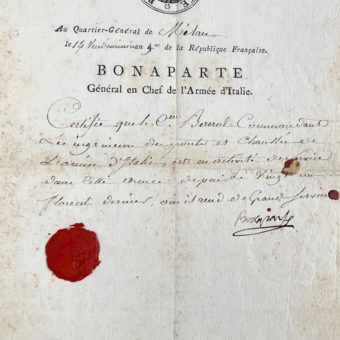 Au Quartier-Général de Milan
le 14 Vendémiaire an 5.me de la République Française.
BONAPARTE
Général en Chef de l'Armée d'Italie.
Certifie que le C.en Barral Commandant
Les ingénieurs des ponts et Chaussées de
L'armée d'Italie, est en activité de service
dans cette armée depuis le Vingt un
floreal dernier, où il rend de Grands Services
Bonaparte